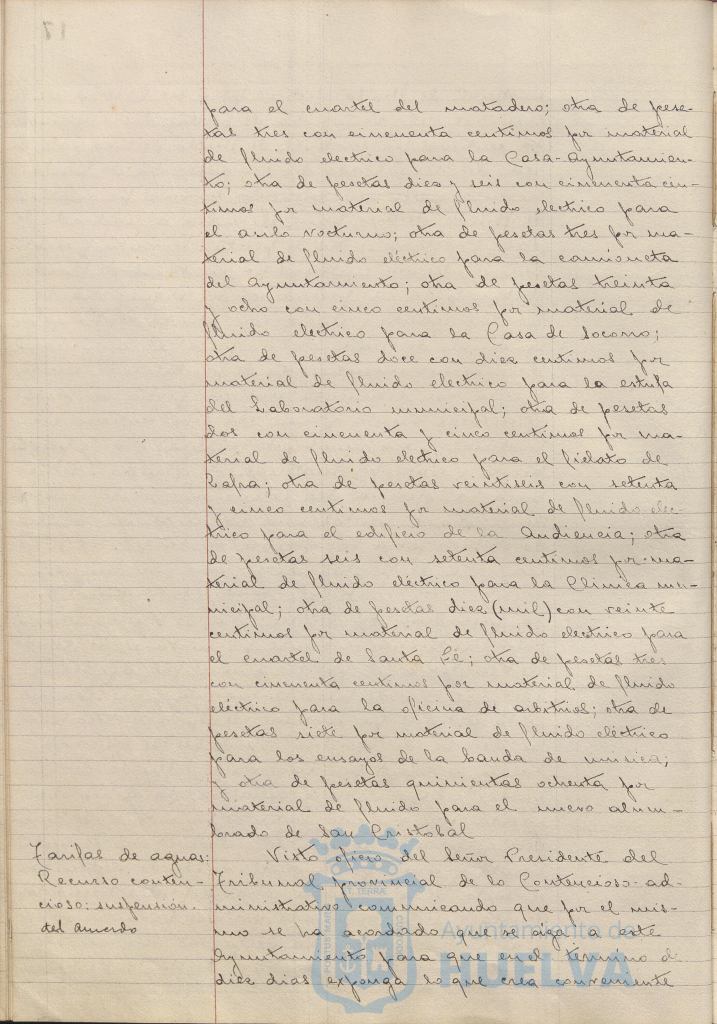 para el cuartel del matadero; otra de pese-
tas tres con cincuenta centimos por material
de fluido electrico para la Casa-Ayuntamien-
to; otra de pesetas diez y seis con cincuenta cen-
timos por material de fluido electrico para
el asilo nocturno; otra de pesetas tres por ma-
terial de fluido eléctrico para la camioneta
del Ayuntamiento; otra de pesetas treinta
y ocho con cinco centimos por material de
fluido electrico para la Casa de Socorro;
otra de pesetas doce con diez centimos por
material de fluido electrico para la estufa
del Laboratorio municipal; otra de pesetas
dos con cincuenta y cinco centimos por ma-
terial de fluido electrico para el fielato de
Zafra; otra de pesetas veintiseis con setenta
y cinco centimos por material de fluido eléc-
trico para el edificio de la Audiencia; otra
de pesetas seis con setenta centimos por ma-
terial de fluido eléctrico para la Clinica mu-
nicipal; otra de pesetas diez (mil) con veinte
centimos por material de fluido electrico para
el cuartel de Santa Fé; otra de pesetas tres
con cincuenta centimos por material de fluido
eléctrico para la oficina de arbitrios; otra de
pesetas siete por material de fluido eléctrico
para los ensayos de la banda de musica;
y otra de pesetas quinientas ochenta por
material de fluido para el nuevo alum-
brado de San Cristobal
Tarifas de aguas:
Recurso conten-
cioso: suspensión
del acuerdo
Visto oficio del Señor Presidente del
Tribunal provincial de lo Contencioso-ad-
ministrativo comunicando que por el mis-
mo se ha acordado que se oiga a este
Ayuntamiento para que en el término de
diez dias exponga lo que crea conveniente
Ayuntamiento de
HUELVA